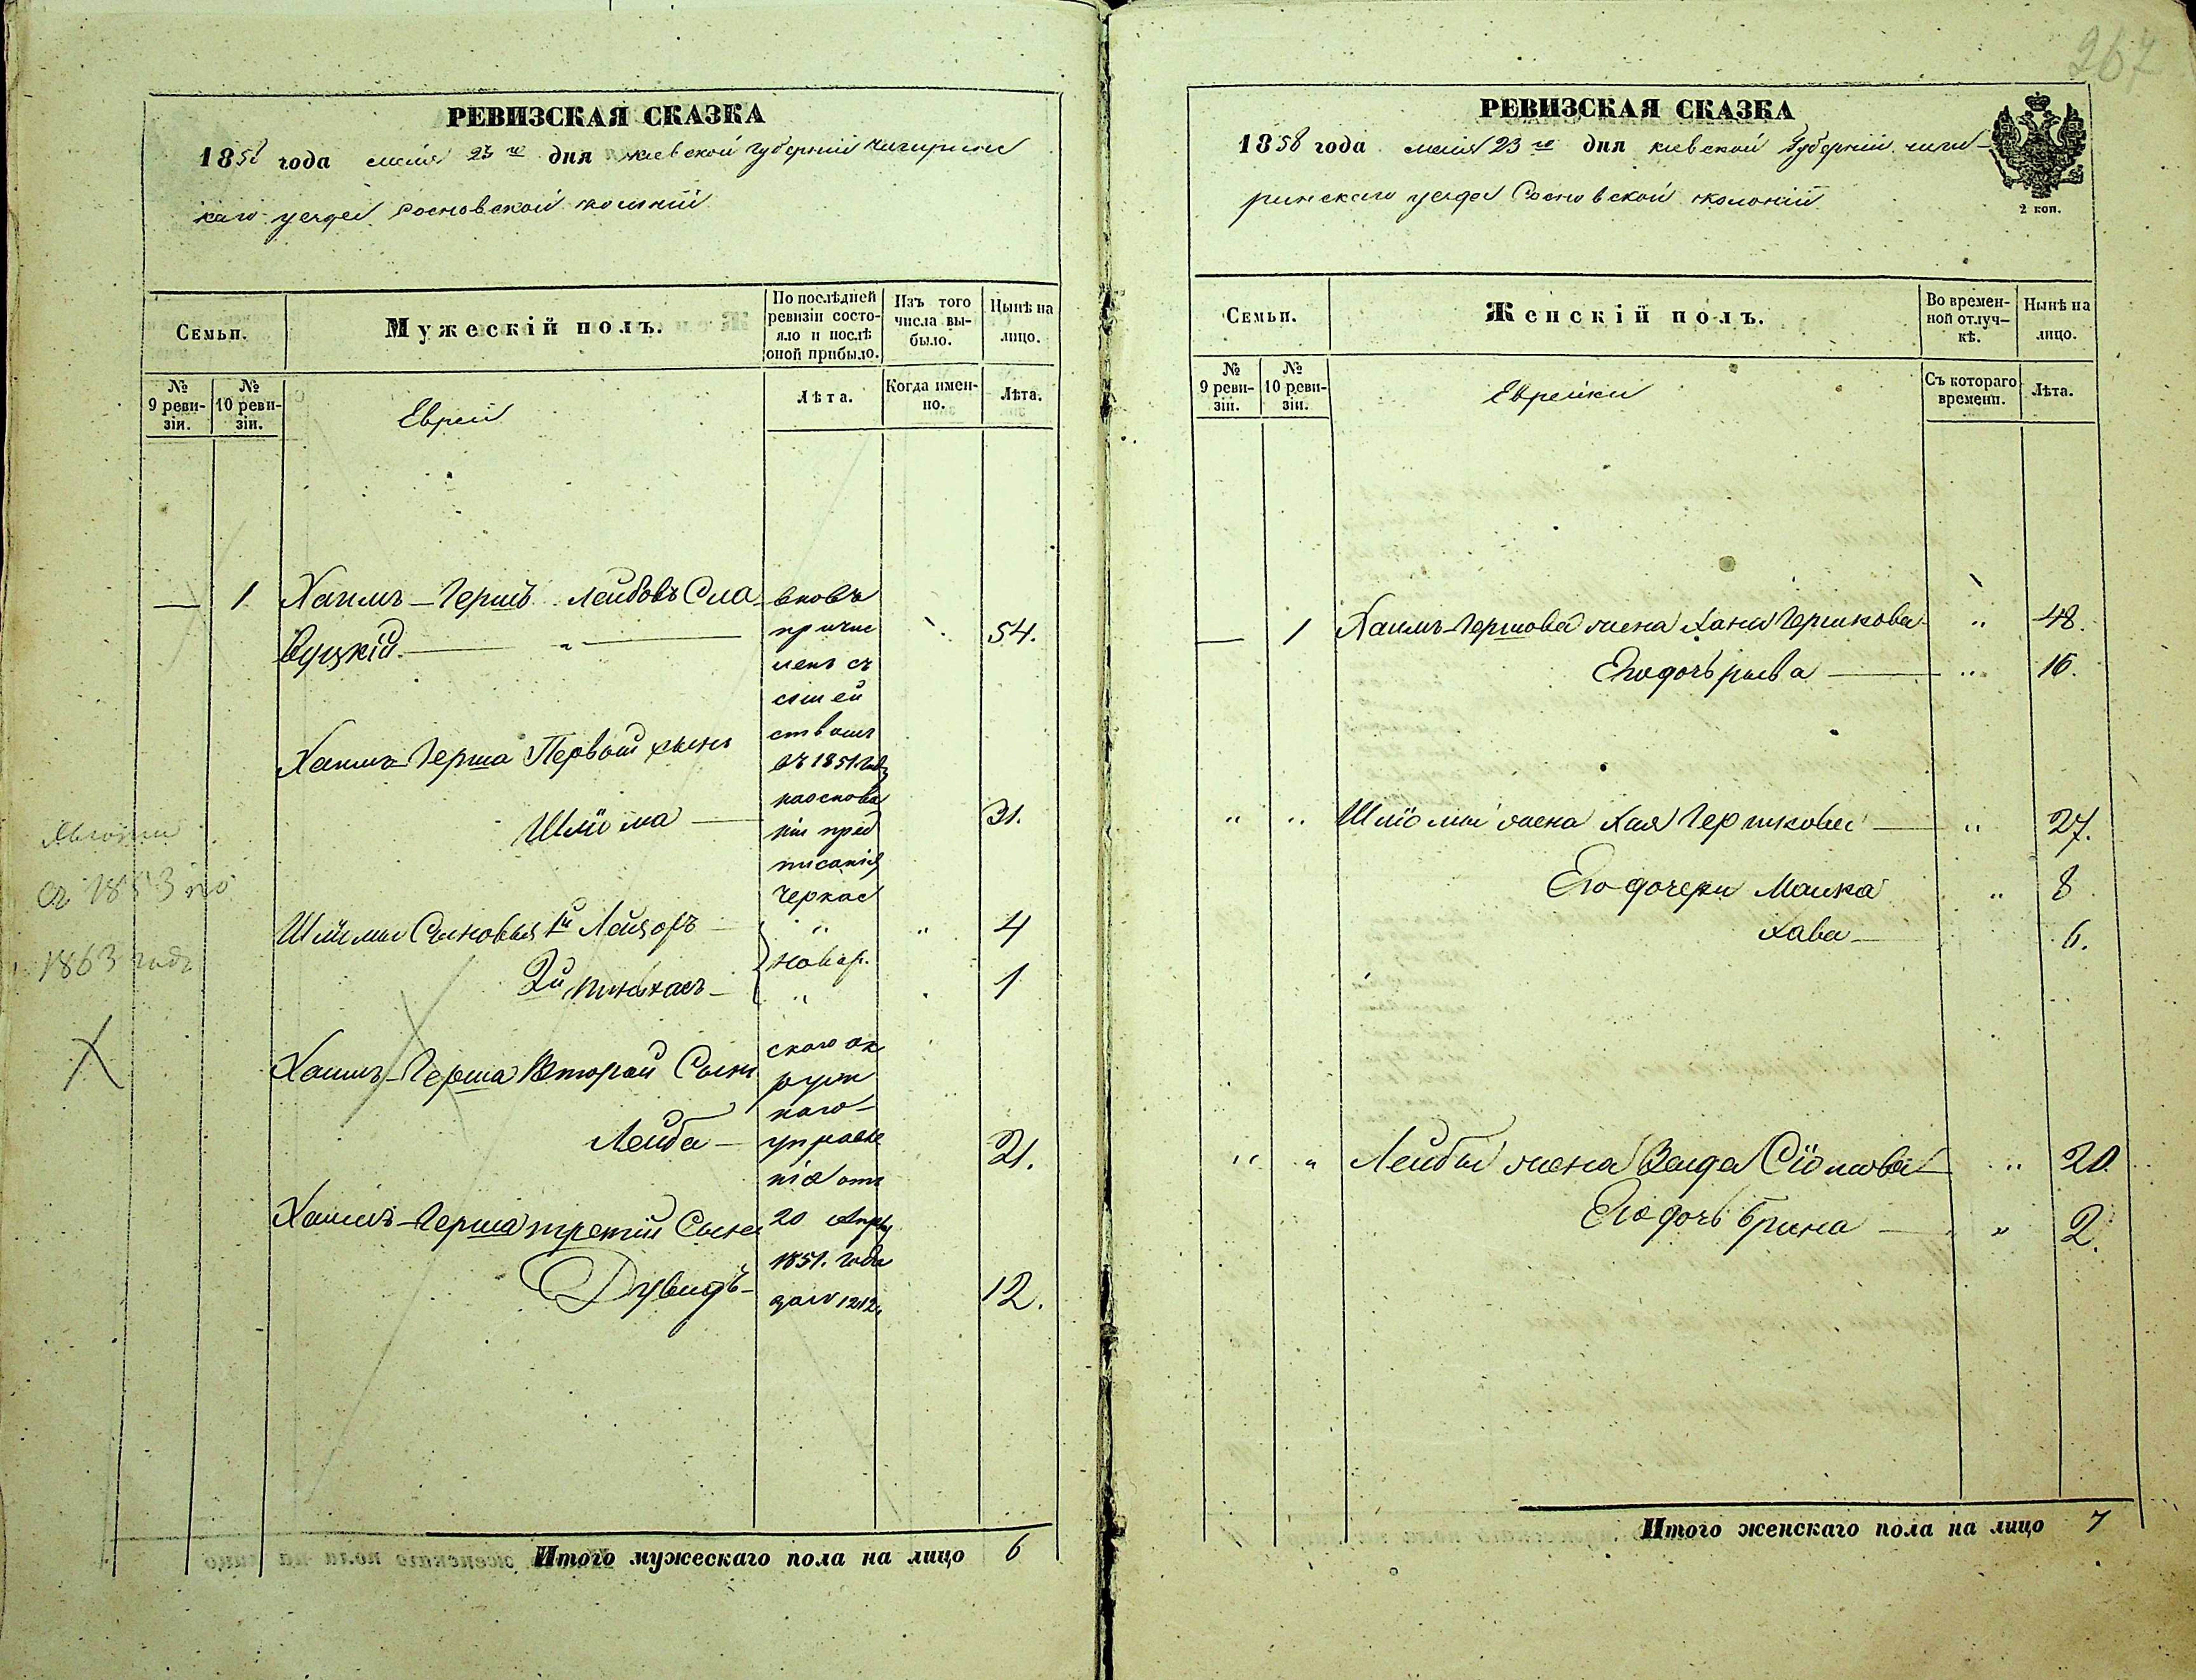 РЕВИЗСКАЯ СКАЗКА
1858 года мая 23го дня киевской губерній чигирин
каго уезда Сосновской колоній
Семьи.
Мужескій полъ.
По послѣдней ревизіи состо-
яло и послѣ оной прибыло.
Изъ того числа вы-
было.
Нынѣ на лицо.
№ 9 реви-
зіи.
№ 10 реви-
зіи.
Евреи
Лѣта.
Когда имен-
но.
Лѣта.
— 1 Хаимъ-Гершъ Лейбовъ Сла
вуцкій. 54.
вновь
причис
ленъ съ
семей
ствомъ
въ 1851 году
на основа
ніи пред
писанія
Черкас
Хаимъ-Герша Первый сынъ
Шліома — 31.
Шліомы Сыновья 1й Лейзоръ — " " 4
новор.
2й Пинхасъ — " 1
Хаимъ-Герша Второй Сынъ
Лейба — 21.
скаго ок
руж
наго
управле
нія отъ
20 Апрѣ
1851. года
за № 1212.
Хаимъ-Герша третій Сынъ
Дувидъ — 12.
съ 1853 по
1863 годъ
Итого мужескаго пола на лицо 6
267
РЕВИЗСКАЯ СКАЗКА
1858 года мая 23го дня киевской губерній чиги-
ринскаго уезда Сосновской колоній
2 коп.
Семьи.
Женскій полъ.
Во времен-
ной отлуч-
кѣ.
Нынѣ на лицо.
№ 9 реви-
зіи.
№ 10 реви-
зіи.
Еврейки
Съ котораго времени.
Лѣта.
— 1 Хаимъ-Гершова жена Хана Гершкова " 48.
Его дочь рыва — " 16.
" " Шліомы жена Хая Гершкова — " 27.
Его дочери Малка " 8
Хава — 6.
" " Лейбы жена Сіомова — " 20
Его дочь брина — " 2.
Итого женскаго пола на лицо 7